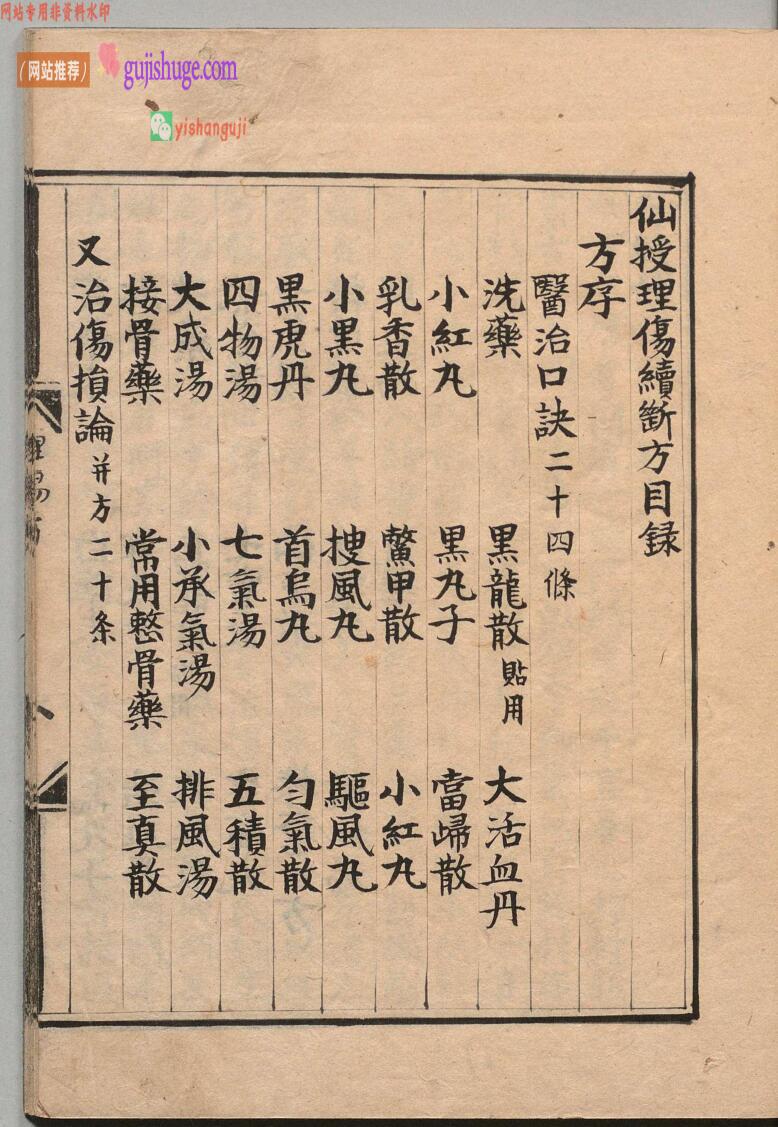 网站专用非资料水印
（网站推荐） gujishuge.com
yishanguji
仙授理傷續斷方目录
方序
醫治口訣二十四條
洗藥 黒龍散貼用 大活血丹
小紅丸 黒丸子 當歸散
乳香散 鱉甲散 小紅丸
小黒丸 搜風丸 驅風丸
黒虎丹 首烏丸 勻氣散
四物湯 七氣湯 五積散
大成湯 小承氣湯 排風湯
接骨藥 常用整骨藥 至真散
又治傷損論并方二十条